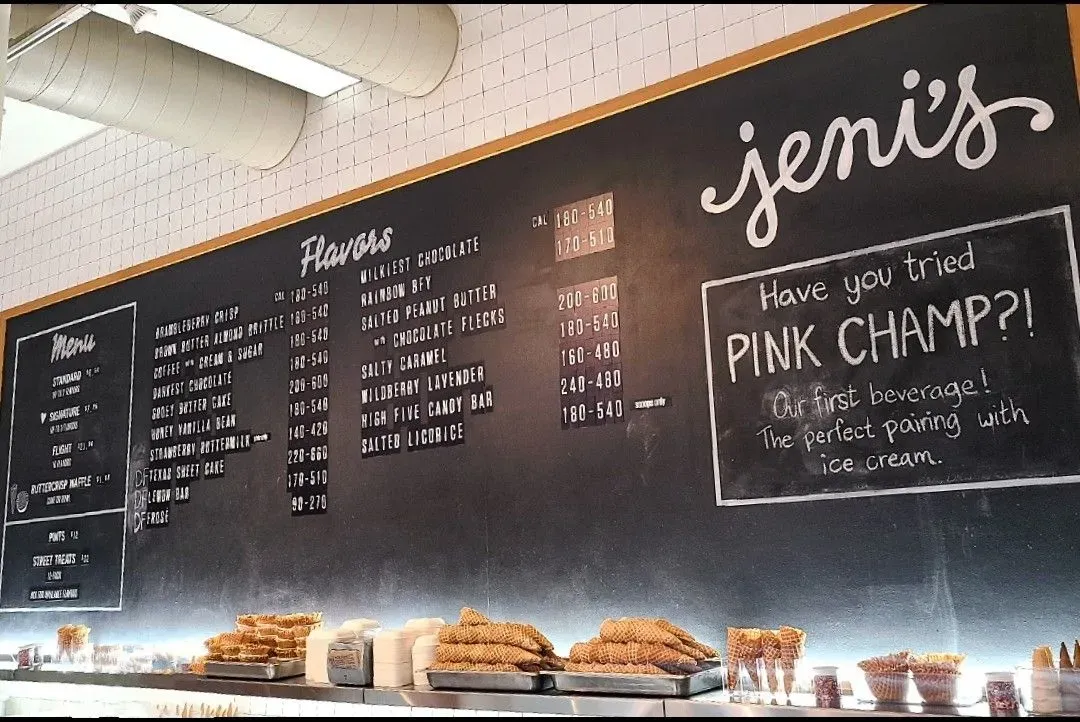 Menu
STANDARD
♥ SIGNATURE
FLIGHT
BUTTERCRISP WAFFLE
CONE OR BOWL
PINTS $12
STREET TREATS $12
Flavors
CAL 180-540
BRAMBLEBERRY CRISP 180-540
BROWN BUTTER ALMOND BRITTLE 180-540
COFFEE WITH CREAM & SUGAR 180-540
DARKEST CHOCOLATE 200-600
GOOEY BUTTER CAKE 180-540
HONEY VANILLA BEAN 140-420
STRAWBERRY BUTTERMILK 220-660
DF TEXAS SHEET CAKE 170-510
DF LEMON BAR 90-270
DF FROSÉ
MILKIEST CHOCOLATE CAL 180-540
RAINBOW BFY 170-510
SALTED PEANUT BUTTER
WITH CHOCOLATE FLECKS 200-600
SALTY CARAMEL 180-540
WILDBERRY LAVENDER 160-480
HIGH FIVE CANDY BAR 240-480
SALTED LICORICE 180-540 scoops only
jeni's
Have you tried
PINK CHAMP?!
Our first beverage!
The perfect pairing with
ice cream.